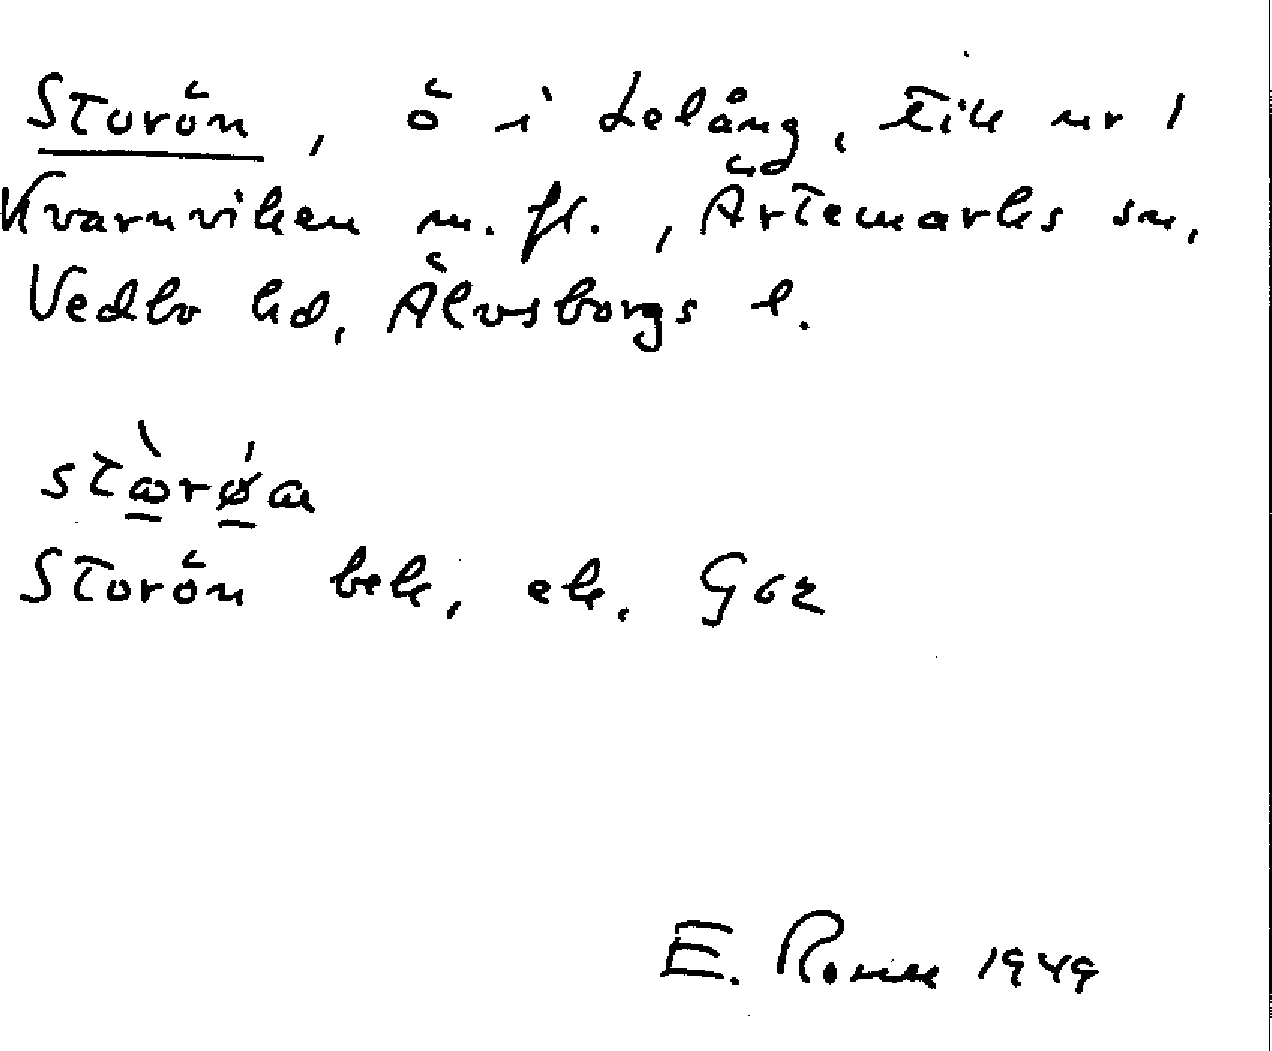 Storön, ö i Lelång, till nr 1
Kvarnviken m. fl., Ärtemarks sn,
Vedbo hd, Älvsborgs l.
stɷ̀rǿa
Storön bek, ek. G62
E. Rosell 1949